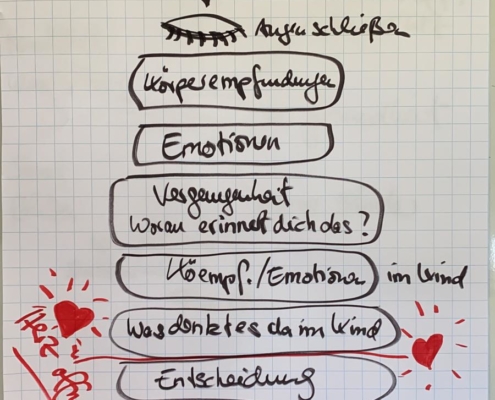 Augen schließen
Körperempfindungen
Emotionen
Vergangenheit
Woran erinnert dich das?
Köempf./Emotionen im Kind
Was denkt es da im Kind
Herz
Entscheidung